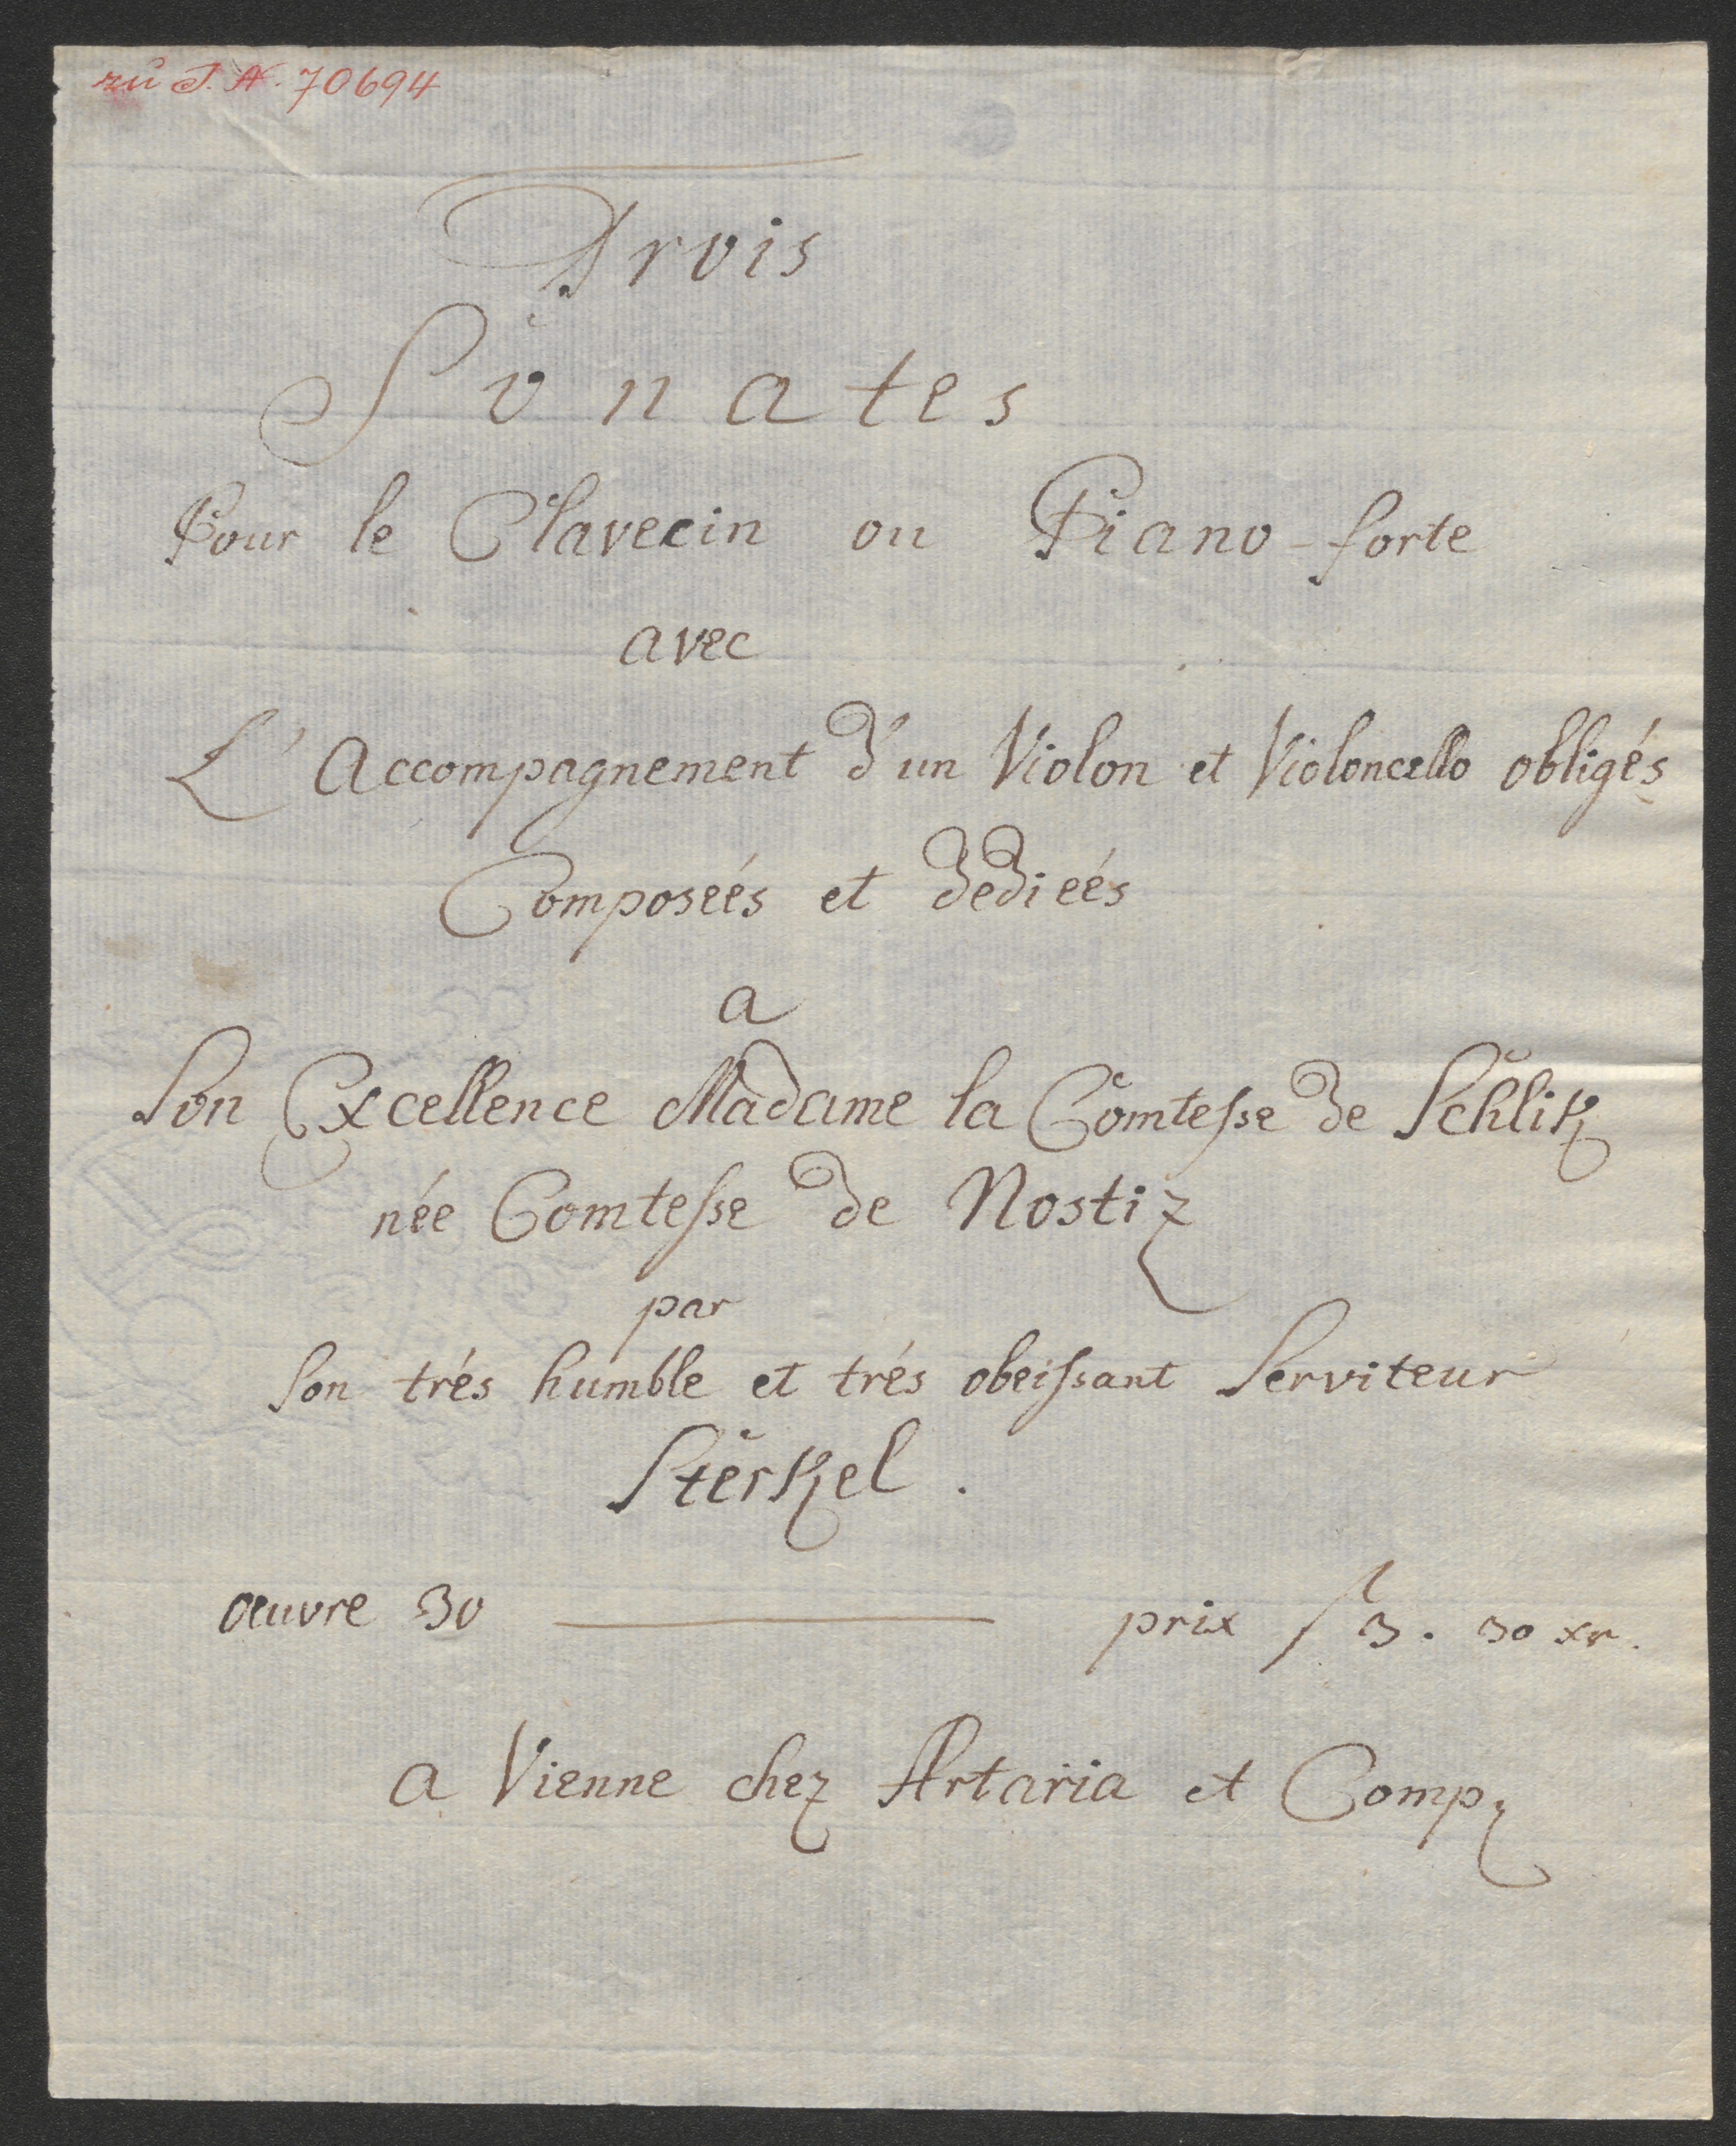 zu J. N. 70694
Trois
Sonates
Pour le Clavecin ou Piano-forte
avec
L'Accompagnement d'un Violon et Violoncello obligés
Composeés et dedieés
a
Son Excellence Madame la Comteſse de Schlik
née Comteſse de Nostiz
par
Son trés humble et trés obeiſsant Serviteur
Sterkel.
œuvre 30 — prix f 3. 30 xr.
a Vienne chez Artaria et Comp: